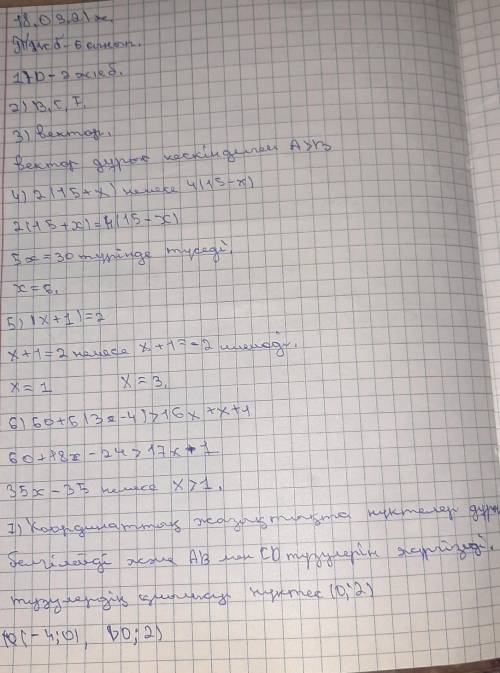 18.03.21ж.
Тжб-6 сынып.
1) D-2 жеб.
2) В, Г, Г,
3) вектор,
вектор дұрыс кескінделген А>В
4) 2(15+х) немесе 4(15-х)
2(15+х)=4(15-х)
5х=30 түрінде түседі,
х=6,
5) |х+1|=2
х+1=2 немесе х+1=-2
х=1 х=3,
6) 60+6(3х-4)>16х+х+1
60+18х-24>17х+1
35х-35 немесе х>1,
7) Координаттық жазықтықта нүктелер
белгілейді және АВ мен CD түзулерін жүргізеді,
түзулердің қиылысу нүктесі (0;2)
(-4;0), (0;2)